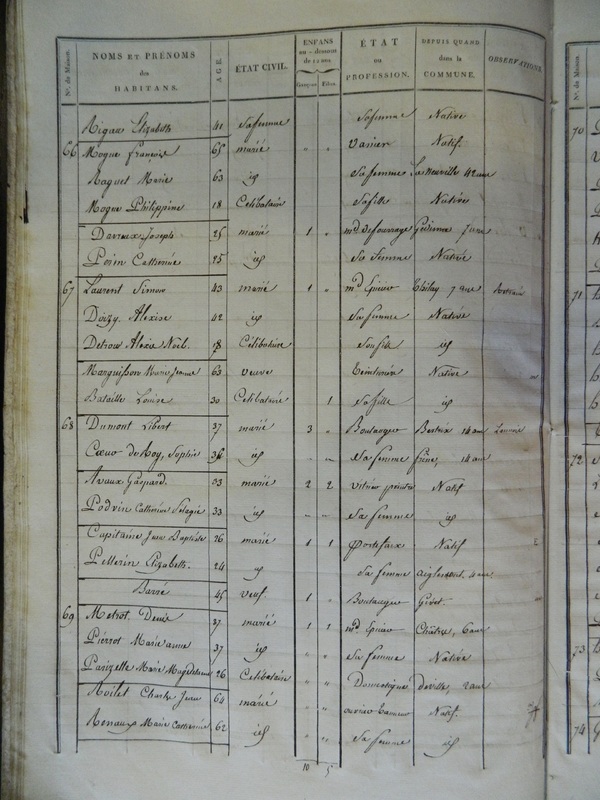 Nos. de Maison. NOMS ET PRÉNOMS des HABITANS. AGE. ÉTAT CIVIL. ENFANS au-dessous de 12 ans Garçons Filles. ÉTAT ou PROFESSION. DEPUIS QUAND dans la COMMUNE. OBSERVATIONS.
Rigaux Elizabeth 41 Sa femme Native
66 Moque françois 65 marié " " Vanier Natif
Maquet Marie 63 id Sa femme La neuville 42 ans
Moque Philippine 18 Celibataire Sa fille Native
Darreux Joseph 25 marié 1 " md de fourrage 7 ans
Poirn Catherine 25 id Sa femme Native
67 Laurent Simon 43 marié 1 " md Epicier Thilay 7 ans
Doizy Alexise 42 id Sa femme Native
Detrou Alexis Noël 18 Célibataire Son fils id
Marguisson Marie Jeanne 63 veuve Teinturière Native
Bataille Louise 30 Celibataire 1 Sa fille id
68 Dumont Libert 37 marié 3 " Boulanger Bertrix 14 ans
Cœur du Roy, Sophie 36 id " " Sa femme 14 ans
Avaux Gaspard. 33 marié 2 2 vitrier peintre Natif
Podvin Catherine 33 id " " Sa femme id
Capitaine Jean Baptiste 26 marié 1 1 portefaix Natif
Pellerin Elizabeth. 24 id Sa femme aiglemont. 4 ans
Barré 45 veuf 1 " Boulanger Givet.
69 Metrot Denis 37 marié 1 1 md Epicier Château, 6 ans
Pierrot Marie anne 37 id " " Sa femme Native
Parizelle Marie Magdelaine 26 Celibataire " " Domestique deville, 2 ans
Noilet Charles Jean 64 marié " " ouvrier Natif.
Renaux Marie Catherine 62 id " " Sa femme id
10 5
Nos. de Maison.
70
71
72
73
74